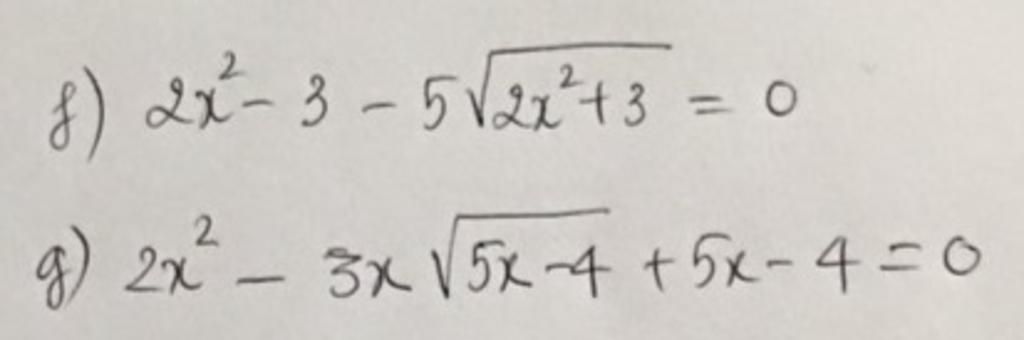 f) 2x² - 3 - 5√(2x²+3) = 0
g) 2x² - 3x√(5x-4) + 5x - 4 = 0